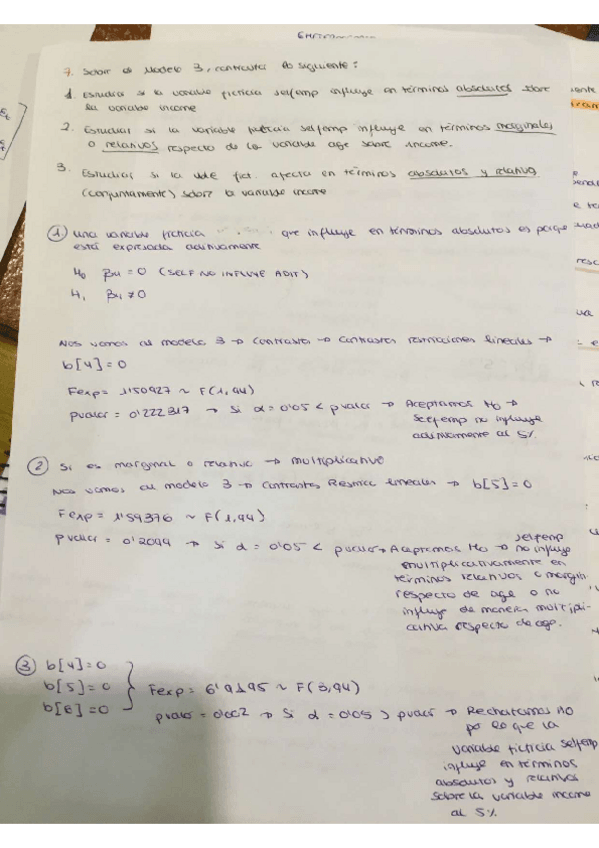 7. Sobre el Modelo 3, contrasta lo siguiente:
1. Estudiar si la variable ficticia selfemp influye en términos absolutos sobre
la variable income
2. Estudiar si la variable ficticia selfemp influye en términos marginales
o relativos respecto de la variable age sobre income.
3. Estudiar si la vble fict. afecta en términos absolutos y relativos
(conjuntamente) sobre la variable income
① una variable ficticia que influye en términos absolutos es porque
está expresada aditivamente
H0 β4 = 0 (SELF NO INFLUYE ADIT)
H1 β4 ≠ 0
Nos vamos al modelo 3 → contrastes → contrastes restricciones lineales →
b[4]=0
Fexp= 1'50927 ~ F(1,94)
pvalor = 0'222317 → Si α = 0'05 < pvalor → Aceptamos Ho →
selfemp no influye
aditivamente al 5%
② Si es marginal o relativo → multiplicativo
Nos vamos al modelo 3 → contrastes Restricc lineales → b[5]=0
Fexp= 1'59376 ~ F(1,94)
pvalor = 0'2099 → Si α = 0'05 < pvalor → Aceptamos Ho → selfemp
no influye
multiplicativamente en
términos relativos o margin.
respecto de age o no
influye de manera multipli-
cativa respecto de age.
③ b[4]=0
b[5]=0
b[6]=0
Fexp= 6'9195 ~ F(3,94)
pvalor = 0'002 → Si α = 0'05 > pvalor → Rechazamos HO
por lo que la
variable ficticia selfemp
influye en términos
absolutos y relativos
sobre la variable income
al 5%